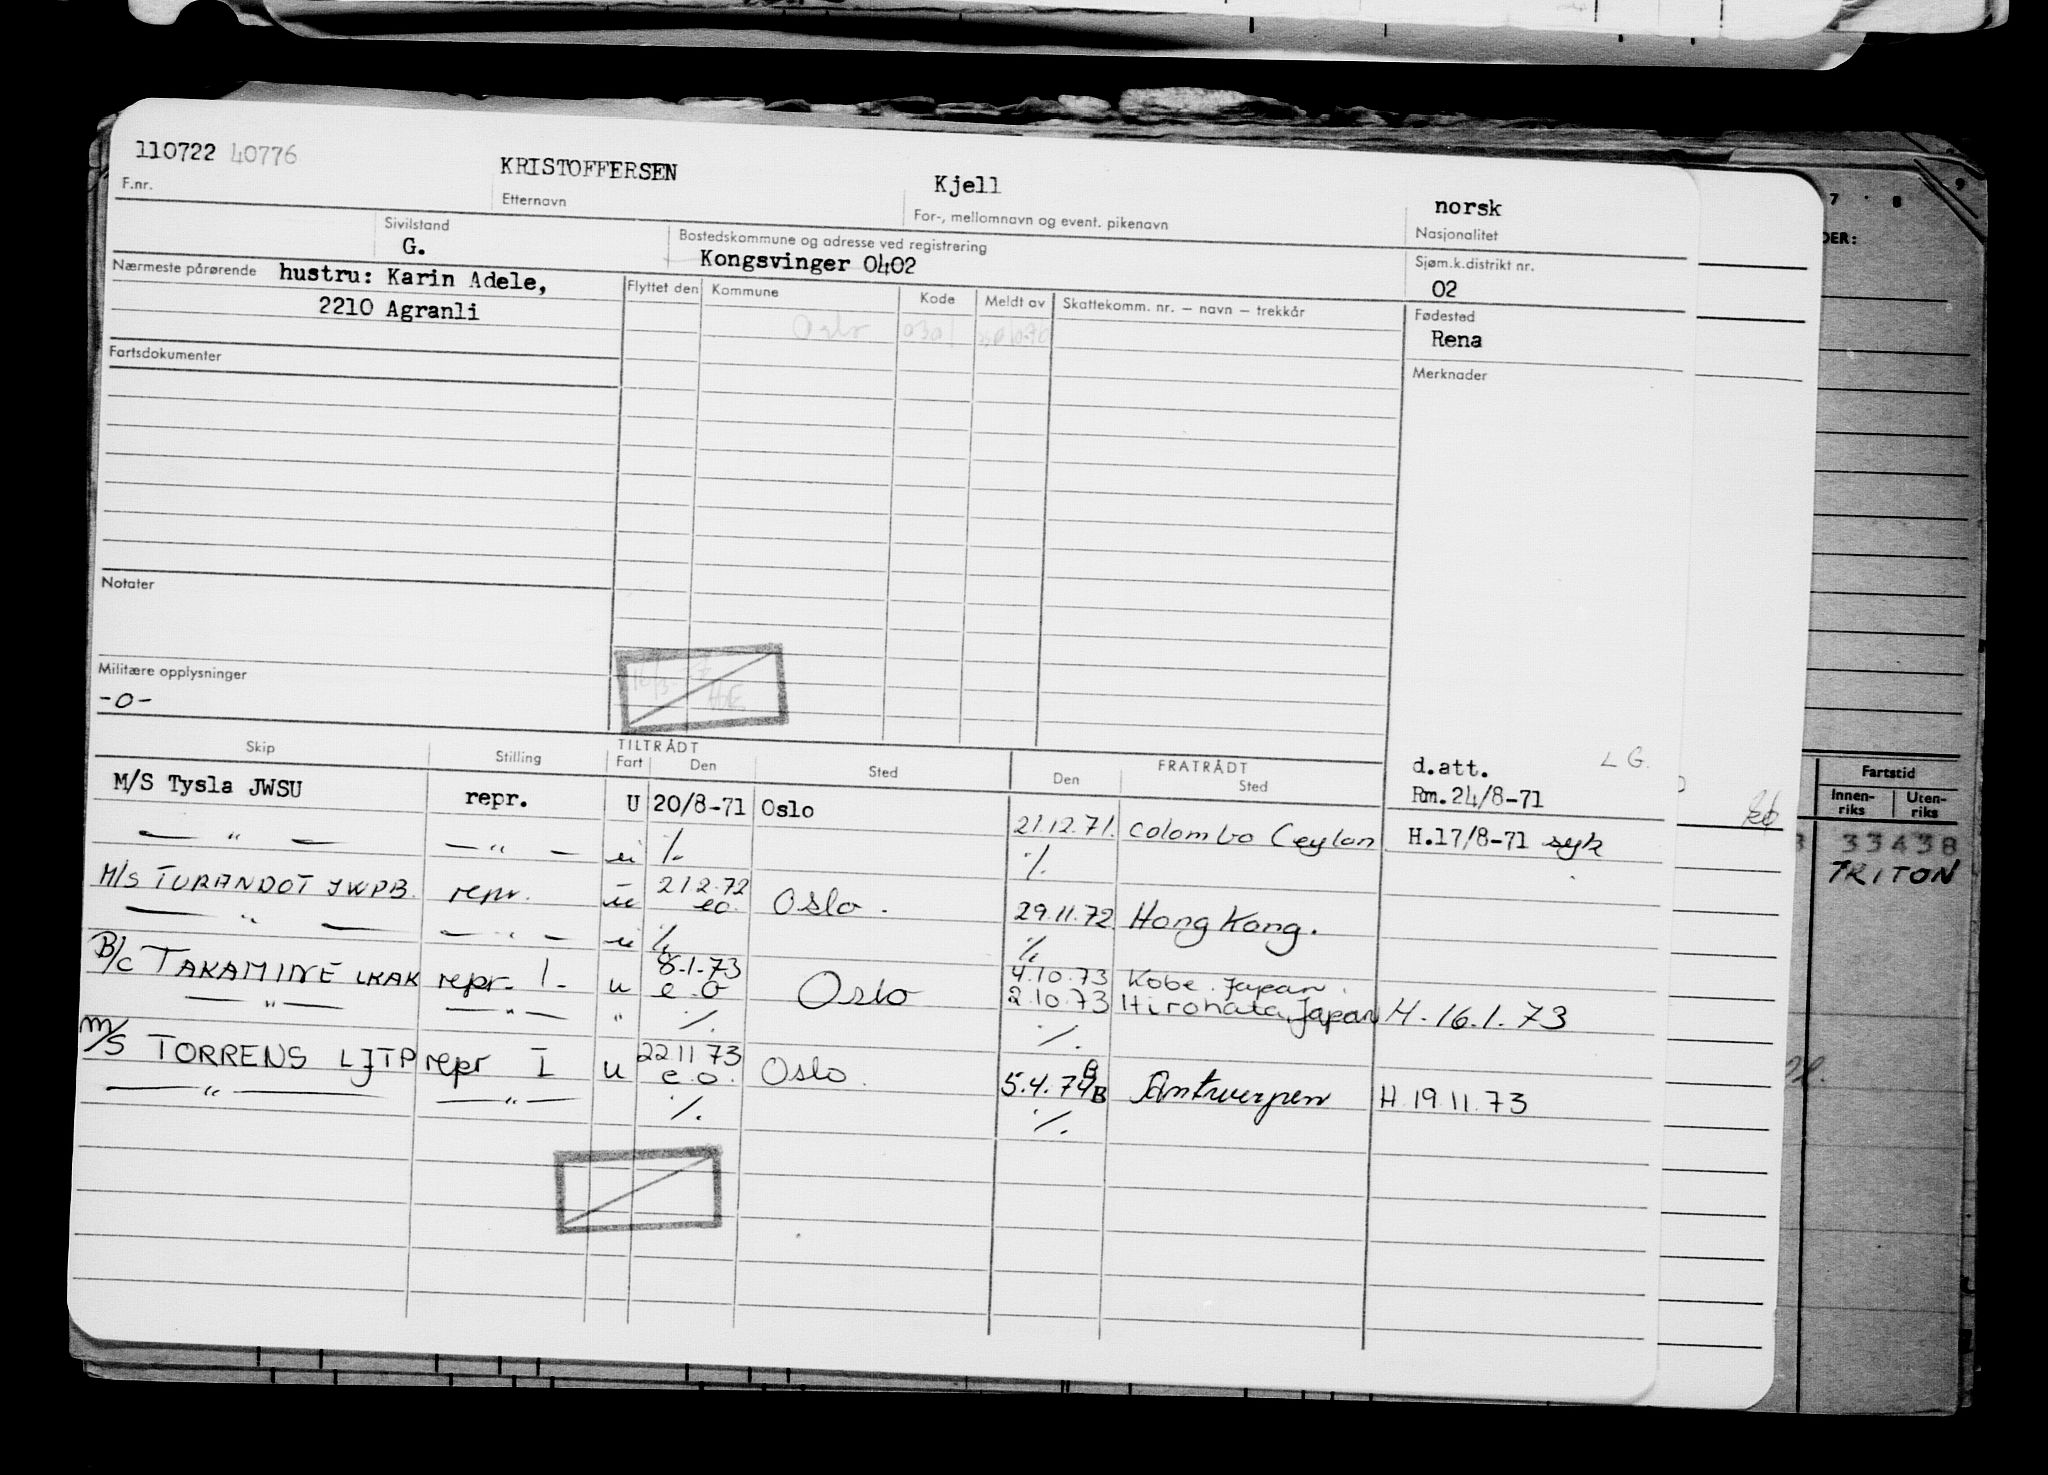 110722 40776 KRISTOFFERSEN Kjell norsk
F.nr. Etternavn For-, mellomnavn og event. pikenavn Nasjonalitet
Sivilstand Bostedskommune og adresse ved registrering Sjøm.k.distrikt nr.
G. Kongsvinger 0402 02
Nærmeste pårørende hustru: Karin Adele, Flyttet den Kommune Kode Meldt av Skattekomm. nr. – navn – trekkår Fødested
2210 Agranli Oslo 0301 Rena
Fartsdokumenter Merknader
Notater
Militære opplysninger
-0-
Skip Stilling TILTRÅDT FRATRÅDT d.att. L G.
Fart Den Sted Den Sted
M/S Tysla JWSU repr. U 20/8-71 Oslo 21.12.71. Colombo Ceylon Rm.24/8-71
— " — — " — ./. ./. H.17/8-71 syk
M/S TURANDOT JWPB. repr. u 21.2.72 eo. Oslo. 29.11.72 Hong Kong.
— " — — " — ./. ./.
B/C TAKAMINE LKAK repr. 1. u 8.1.73 e.o Oslo 4.10.73 Kobe. Japan.
2.10.73 Hirohata, Japan H. 16.1.73
— " — — " — " ./. ./.
M/S TORRENS LJTP repr I u 22.11.73 e.o. Oslo. 5.4.74 B Antwerpen H.19.11.73
— " — — " — ./. ./.
7 8 9
DER:
Fartstid
Innen-riks Uten-riks
33438
TRITON